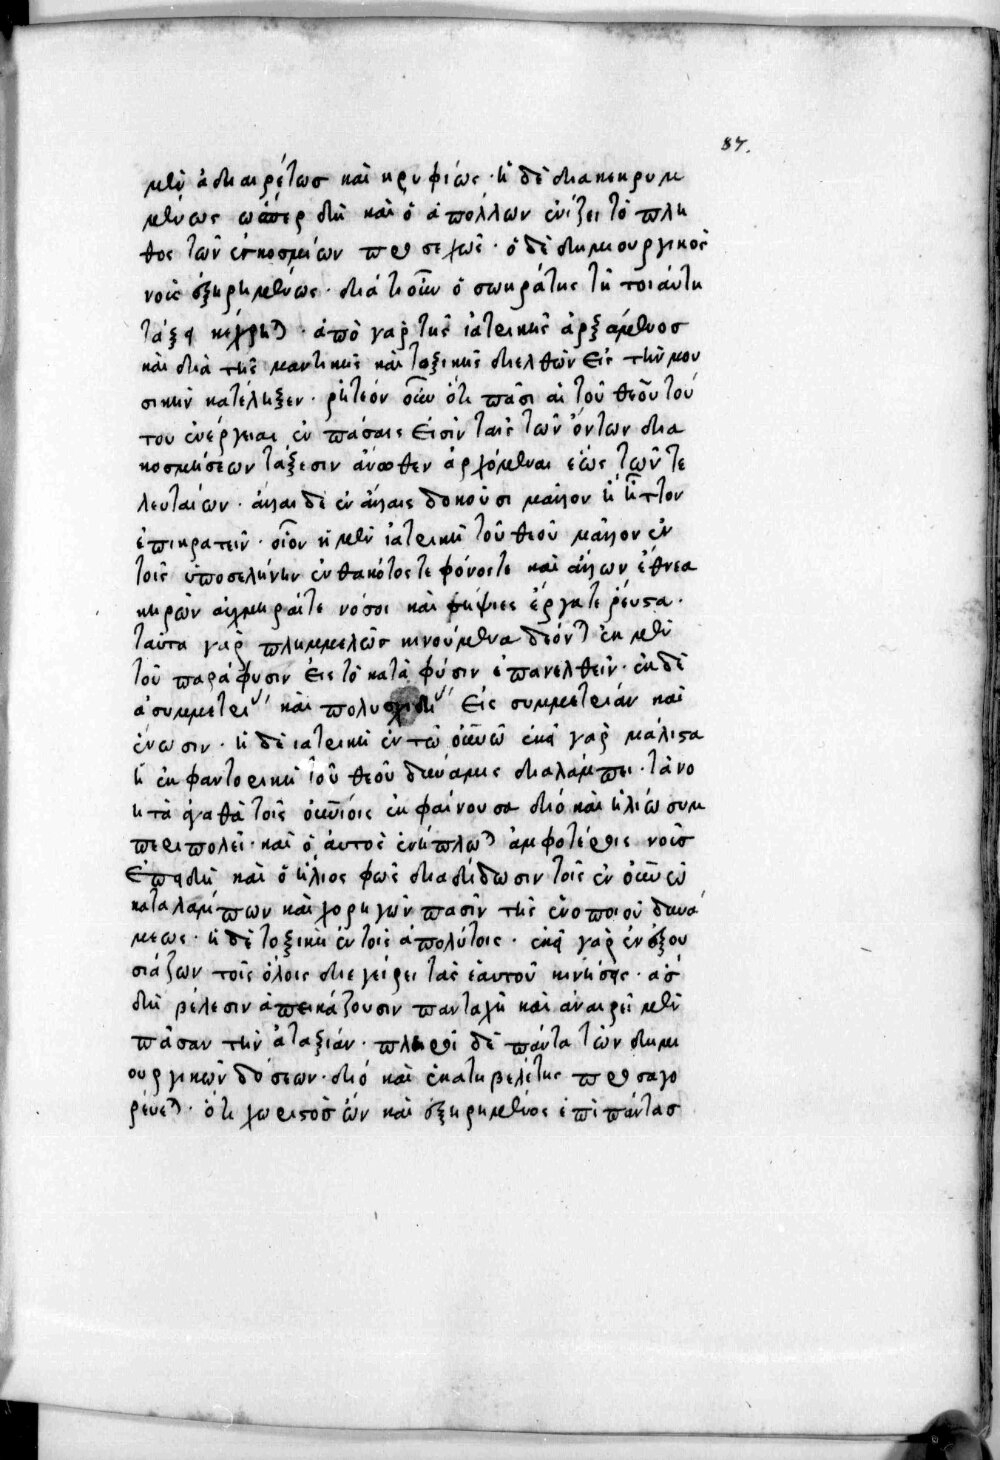 87.
μὲν ἀδιαιρέτωσ καὶ κρυφίως · ἡ δὲ διακεκριμ
μένως ὥσπερ δὴ καὶ ὁ ἀπόλλων ἑνίζει τὸ πλῆ
θος τῶν ἐγκοσμίων προσεχῶς · ὁ δὲ δημιουργικὸς
νοῦς ἐξῃρημένως · διὰ τί οὖν ὁ σωκράτης τῇ τοιαύτῃ
τάξει κέχρηται · ἀπὸ γὰρ τῆς ἰατρικῆς ἀρξάμενοσ
καὶ διὰ τῆς μαντικῆς καὶ τοξικῆς διελθὼν εἰς τὴν μου
σικὴν κατέληξεν · ῥητέον οὖν ὅτι πᾶσαι αἱ τοῦ θεοῦ τού
του ἐνέργειαι ἐν πάσαις εἰσὶν ταῖς τῶν ὄντων δια
κοσμήσεων τάξεσιν ἄνωθεν ἀρχόμεναι ἕως τῶν τε
λευταίων · ἄλλαι δὲ ἐν ἄλλαις δοκοῦσι μᾶλλον ἢ ἧττον
ἐπικρατεῖν · οἷον ἡ μὲν ἰατρικὴ τοῦ θεοῦ μᾶλλον ἐν
τοῖς ὑπὸ σελήνην ἔνθα κότος τε φόνος τε καὶ ἄλλων ἔθνεα
κηρῶν αὐχμηραί τε νόσοι καὶ σήψιες ἔργα τε ῥευστά ·
ταῦτα γὰρ πλημμελῶς κινούμενα δέονται ἐκ μὲν
τοῦ παρὰ φύσιν εἰς τὸ κατὰ φύσιν ἐπανελθεῖν · ἐκ δὲ
ἀσυμμετρίας καὶ πολυσχιδίας εἰς συμμετρίαν καὶ
ἕνωσιν · ἡ δὲ ἰατρικὴ ἐν τῷ οὐρανῷ ἐκεῖ γὰρ μάλιστα
ἡ ἐκφαντορικὴ τοῦ θεοῦ δύναμις διαλάμπει · τὰ νο
ητὰ ἀγαθὰ τοῖς οὐρανίοις ἐκφαίνουσα διὸ καὶ ἡλίῳ συμ
περιπολεῖ · καὶ ὁ αὐτὸς ἐνήπλωται ἀμφοτέροις νοῦσ
ἐπειδὴ καὶ ὁ ἥλιος φῶς διαδίδωσιν τοῖς ἐν οὐρανῷ
καταλάμπων καὶ χορηγῶν πᾶσιν τῆς ἑνοποιοῦ δυνά
μεως · ἡ δὲ τοξικὴ ἐν τοῖς ἀπολύτοις · ἐκεῖ γὰρ ἐνεξου
σιάζων τοῖς ὅλοις διεγείρει τὰς ἑαυτοῦ κινήσεις · ἃσ
δὴ βέλεσιν ἀπεικάζουσιν πανταχῆ καὶ ἀναιρεῖ μὲν
πᾶσαν τὴν ἀταξίαν · πληροῖ δὲ πάντα τῶν δημι
ουργικῶν δόσεων · διὸ καὶ ἑκατηβελέτης προσαγο
ρεύεται · ὅτι χωριστὸσ ὢν καὶ ἐξῃρημένος ἐπὶ πάντασ